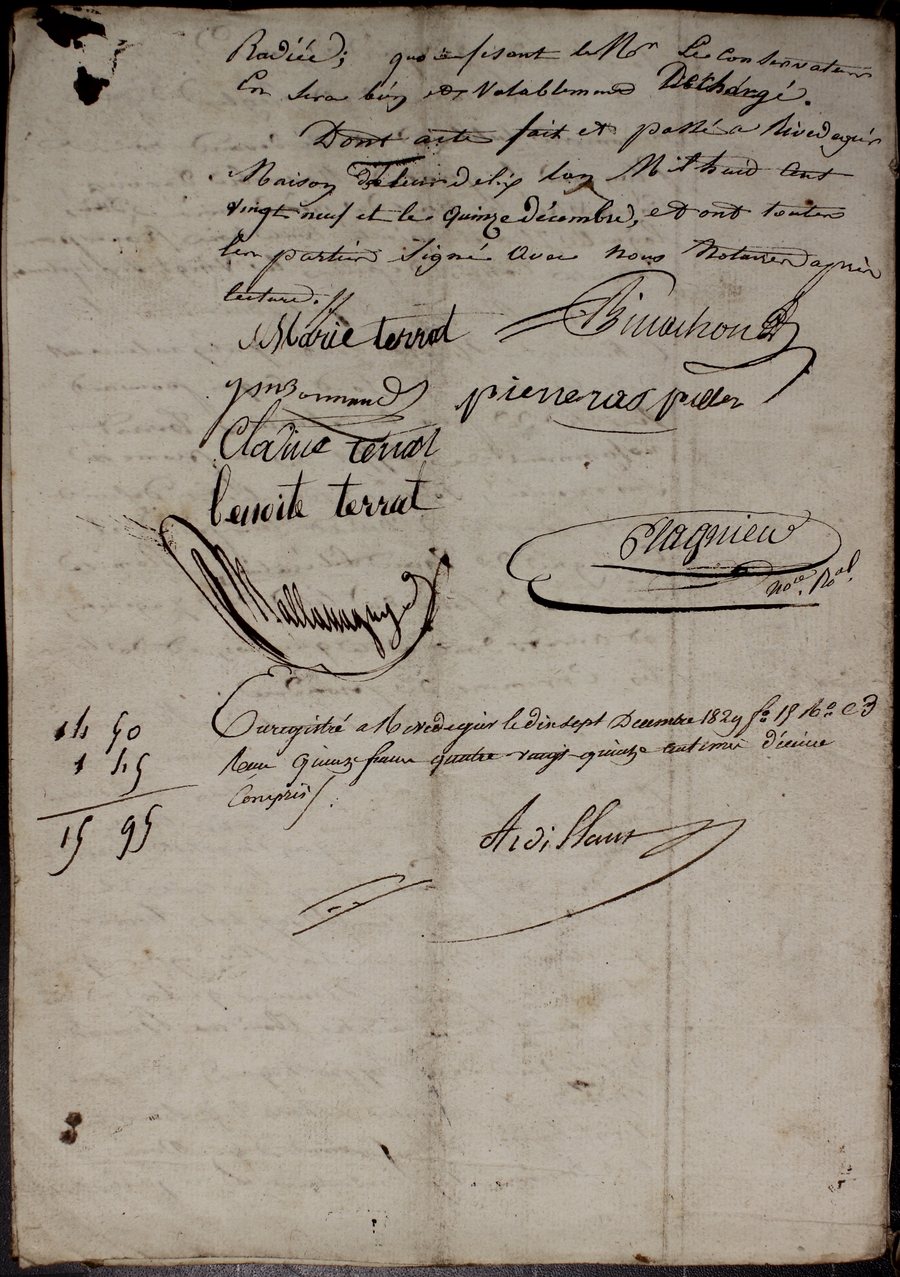 Radiée; quoi fesant le Mr. Le Conservateur
En sera bien et Valablement Déchargé.
Dont acte fait et passé a Rivedegier
Maison l'an Mil huit cent
vingt neuf et le quinze décembre, et ont toutes
les parties signé avec nous Notaires après
lecture.//
Marie terrat
pierre ras
Claudine terrat
benoite terrat
Plagnieu
nore. Roal.
14 50
1 45
15 95
Enregistré a Rivedegier le dix sept Decembre 1829 fo. 15 Ro. C 3
Reçu quinze francs quatre vingt quinze centimes décime
Compris/.
Ardillaut